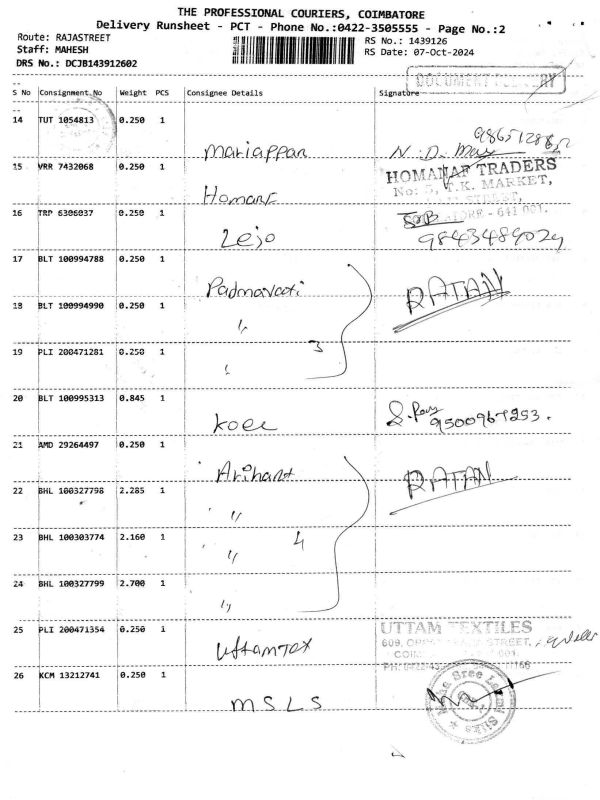 THE PROFESSIONAL COURIERS, COIMBATORE
Delivery Runsheet - PCT - Phone No.:0422-3505555 - Page No.:2
Route: RAJASTREET
RS No.: 1439126
Staff: MAHESH
RS Date: 07-Oct-2024
DRS No.: DCJB143912602
DOCUMENT DELIVERY
S No Consignment No Weight PCS Consignee Details Signature
14 TUT 1054813 0.250 1
Mariappan
15 VRR 7432068 0.250 1
HOMARAF TRADERS
T.K. MARKET,
STREET,
16 TRP 6306037 0.250 1
- 641 001.
Lejo
9843489029
17 BLT 100994788 0.250 1
Padmavati
RATAN
18 BLT 100994990 0.250 1
"
3
19 PLI 200471281 0.250 1
20 BLT 100995313 0.845 1
9500967253.
21 AMD 29264497 0.250 1
Arihant
RATAN
22 BHL 100327798 2.285 1
"
23 BHL 100303774 2.160 1
" 4
24 BHL 100327799 2.700 1
"
25 PLI 200471354 0.250 1
UTTAM TEXTILES
609, STREET,
Uttamtex
26 KCM 13212741 0.250 1
MSLS
Sree
Silks